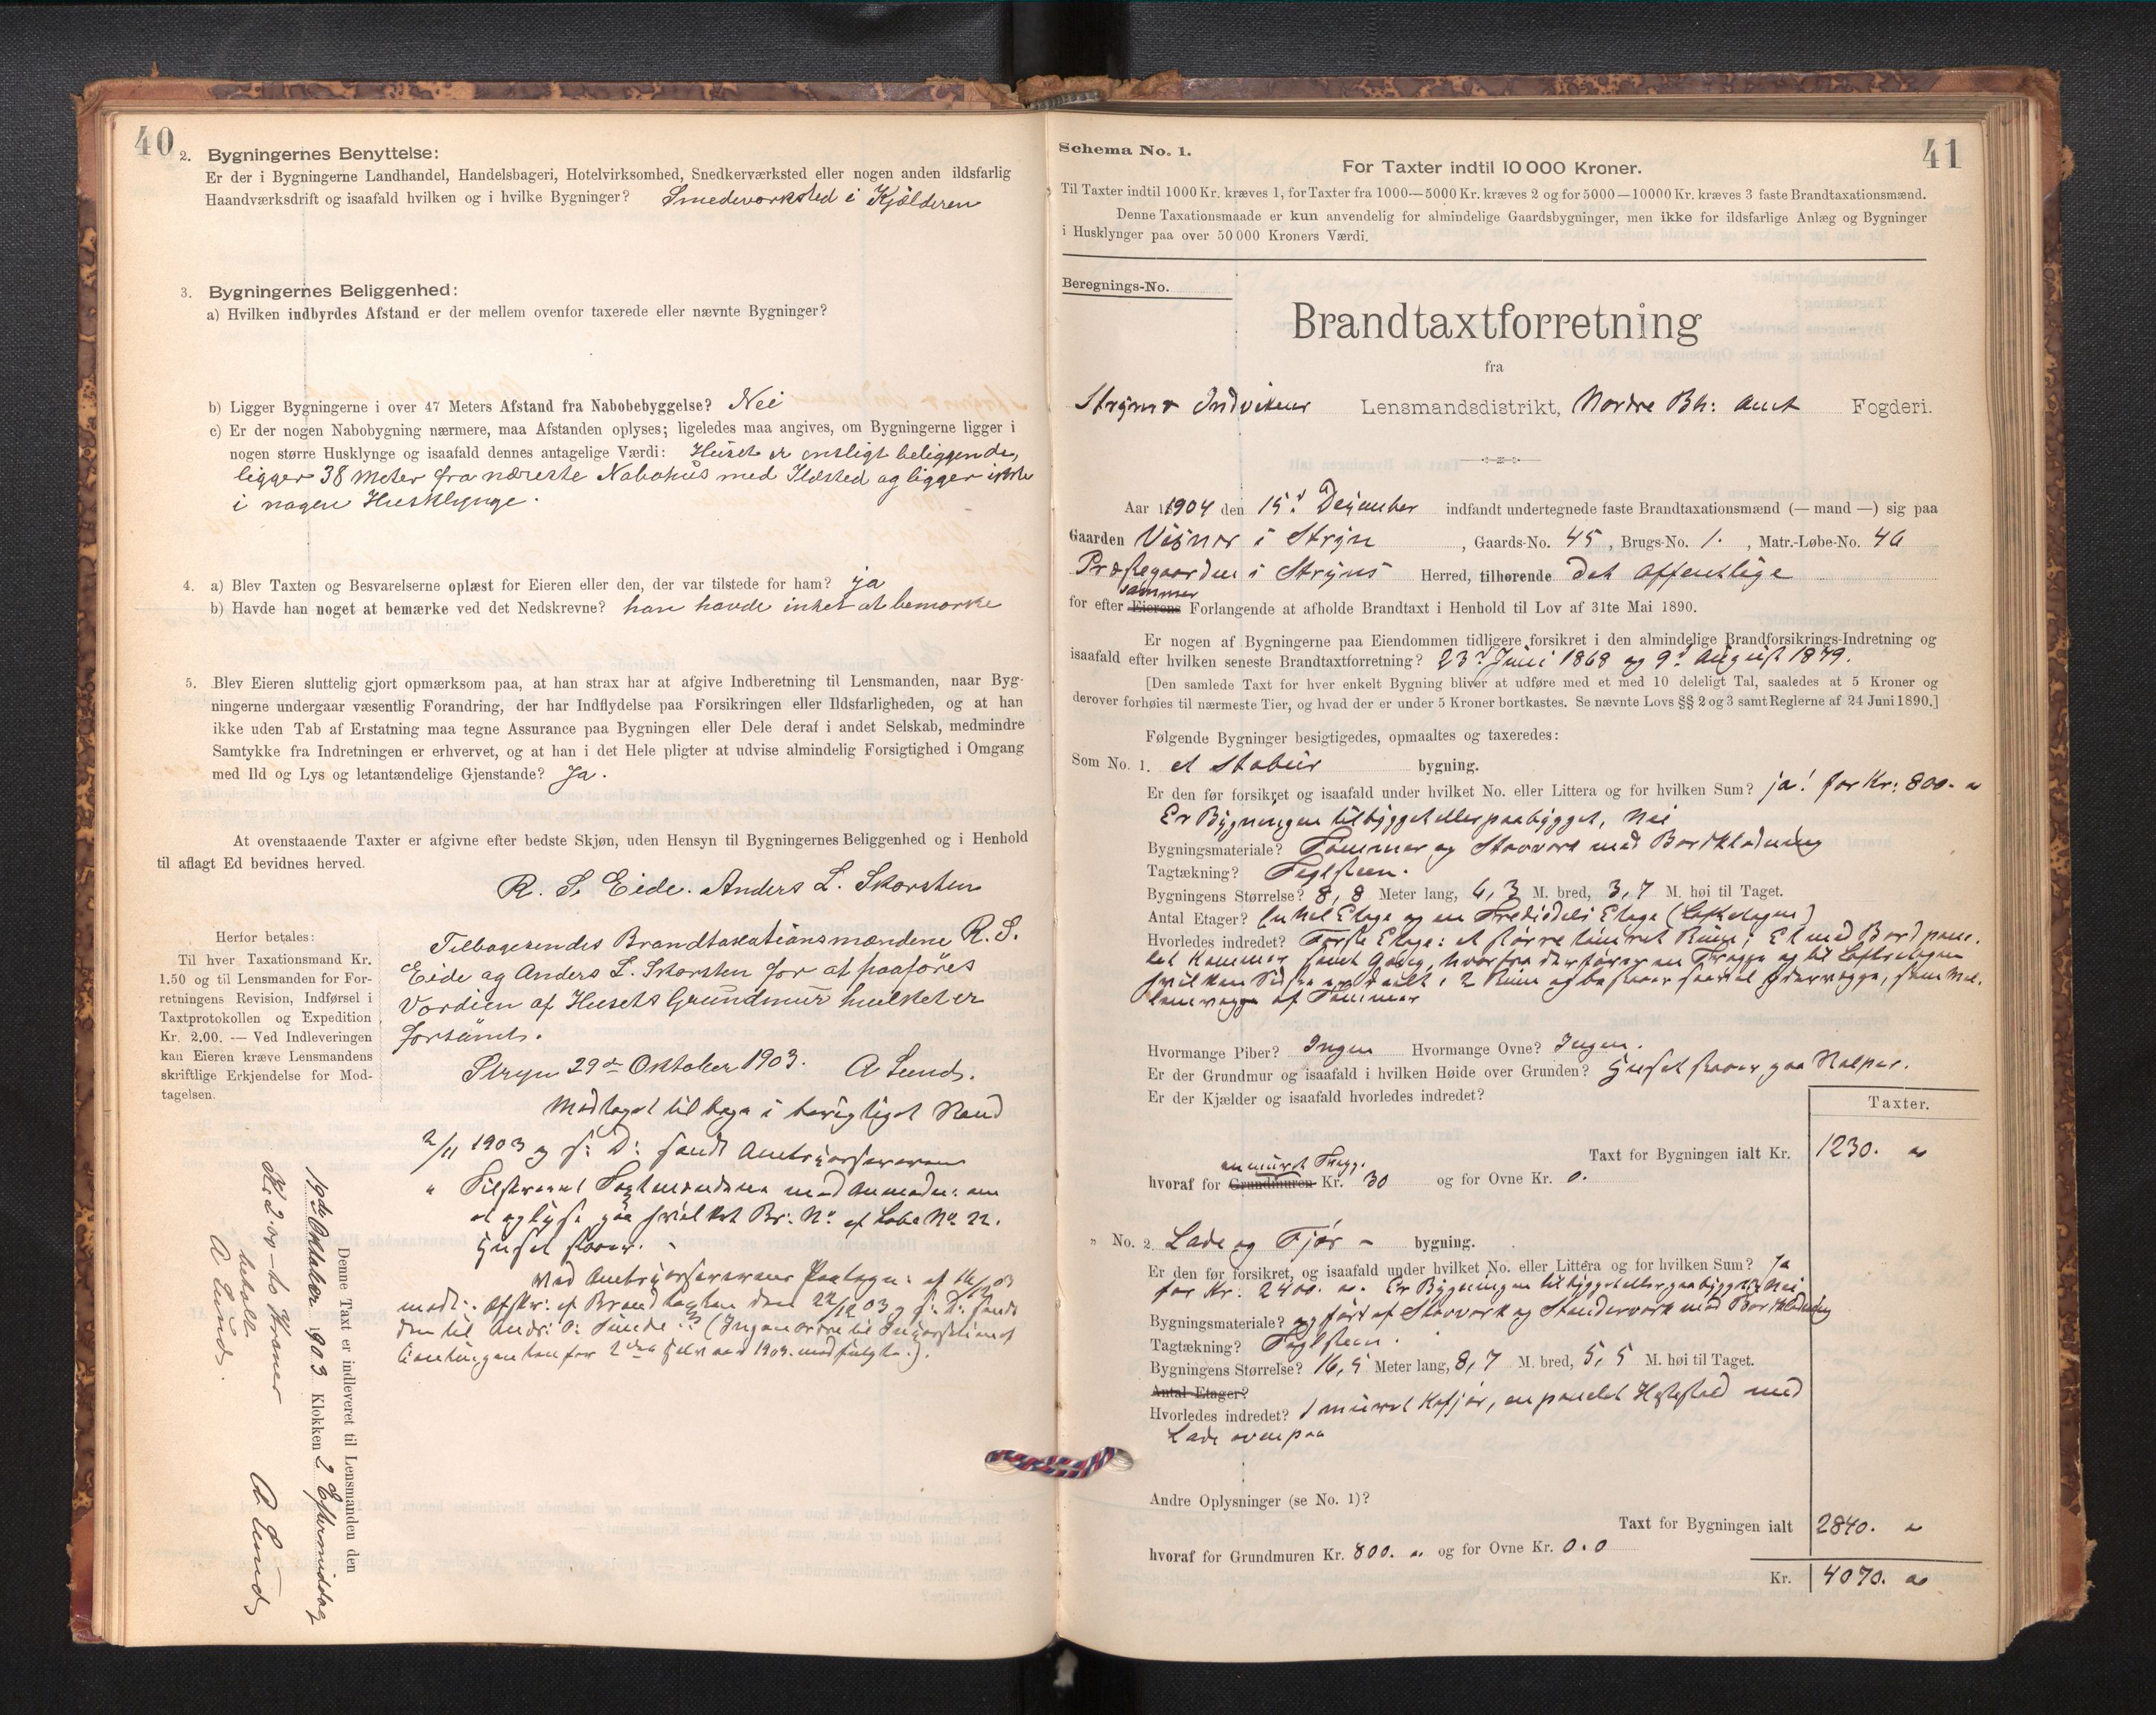 40
2. Bygningernes Benyttelse:
Er der i Bygningerne Landhandel, Handelsbageri, Hotelvirksomhed, Snedkerværksted eller nogen anden ildsfarlig
Haandværksdrift og isaafald hvilken og i hvilke Bygninger? Smedeværksted i Kjælderen
3. Bygningernes Beliggenhed:
a) Hvilken indbyrdes Afstand er der mellem ovenfor taxerede eller nævnte Bygninger?
b) Ligger Bygningerne i over 47 Meters Afstand fra Nabobebyggelse? Nei
c) Er der nogen Nabobygning nærmere, maa Afstanden oplyses; ligeledes maa angives, om Bygningerne ligger i
nogen større Husklynge og isaafald dennes antagelige Værdi: Huset er ensligt beliggende,
ligger 38 Meter fra næreste Nabohus med Ildsted og ligger ikke
i nogen Husklynge.
4. a) Blev Taxten og Besvarelserne oplæst for Eieren eller den, der var tilstede for ham? ja
b) Havde han noget at bemærke ved det Nedskrevne? han havde intet at bemærke
5. Blev Eieren sluttelig gjort opmærksom paa, at han strax har at afgive Indberetning til Lensmanden, naar Byg-
ningerne undergaar væsentlig Forandring, der har Indflydelse paa Forsikringen eller Ildsfarligheden, og at han
ikke uden Tab af Erstatning maa tegne Assurance paa Bygningen eller Dele deraf i andet Selskab, medmindre
Samtykke fra Indretningen er erhvervet, og at han i det Hele pligter at udvise almindelig Forsigtighed i Omgang
med Ild og Lys og letantændelige Gjenstande? Ja.
At ovenstaaende Taxter er afgivne efter bedste Skjøn, uden Hensyn til Bygningernes Beliggenhed og i Henhold
til aflagt Ed bevidnes herved.
R. S. Eide. Anders L. Skarsten
Herfor betales:
Til hver Taxationsmand Kr.
1.50 og til Lensmanden for For-
retningens Revision, Indførsel i
Taxtprotokollen og Expedition
Kr. 2.00. — Ved Indleveringen
kan Eieren kræve Lensmandens
skriftlige Erkjendelse for Mod-
tagelsen.
Tilbagesendes Brandtaxationsmændene R. S.
Eide og Anders L. Skarsten for at paaføres
Værdien af Husets Grundmur hvilket er
forsømt.
Stryn 29de Oktober 1903. A Lund.
Modtaget tilbage i berigtiget Stand
2/11 1903 og s: D: sendt
Huset staaer.
Denne Taxt er indleveret til Lensmanden den
19de Oktober 1903 Klokken 2 Eftermiddag
A Lund
Kr 2.00 - to Kroner
betalt.
A Lund.
41
Schema No. 1.
For Taxter indtil 10 000 Kroner.
Til Taxter indtil 1000 Kr. kræves 1, for Taxter fra 1000—5000 Kr. kræves 2 og for 5000—10000 Kr. kræves 3 faste Brandtaxationsmænd.
Denne Taxationsmaade er kun anvendelig for almindelige Gaardsbygninger, men ikke for ildsfarlige Anlæg og Bygninger
i Husklynger paa over 50 000 Kroners Værdi.
Beregnings-No.
Brandtaxtforretning
fra
Stryns Indvikens Lensmandsdistrikt, Nordre Bh: Amt Fogderi.
Aar 1904 den 15d December indfandt undertegnede faste Brandtaxationsmænd (— mand —) sig paa
Gaarden Visnes i Stryn, Gaards-No. 45, Brugs-No. 1., Matr.-Løbe-No. 46
Præstegaarden i Stryns Herred, tilhørende det offentlige
for efter Eierens sammes Forlangende at afholde Brandtaxt i Henhold til Lov af 31te Mai 1890.
Er nogen af Bygningerne paa Eiendommen tidligere forsikret i den almindelige Brandforsikrings-Indretning og
isaafald efter hvilken seneste Brandtaxtforretning? 23d Juni 1868 og 9d August 1879.
[Den samlede Taxt for hver enkelt Bygning bliver at udføre med et med 10 deleligt Tal, saaledes at 5 Kroner og
derover forhøies til nærmeste Tier, og hvad der er under 5 Kroner bortkastes. Se nævnte Lovs §§ 2 og 3 samt Reglerne af 24 Juni 1890.]
Følgende Bygninger besigtigedes, opmaaltes og taxeredes:
Som No. 1. et Stabur bygning.
Er den før forsikret og isaafald under hvilket No. eller Littera og for hvilken Sum? ja! for Kr: 800.
Er Bygningen tilbygget eller paabygget, Nei
Bygningsmateriale? Tømmer og Stavværk med Bordklædning
Tagtækning? Teglsteen.
Bygningens Størrelse? 8,8 Meter lang, 6,3 M. bred, 3,7 M. høi til Taget.
Antal Etager? En hel Etage og en Trediedels Etage (Loftetagen)
Hvorledes indredet? Første Etage: et større tømret Rum; Et med Bord pane-
let Kammer samt Gang, hvorfra der fører en Trappe op til Loftsetagen
2 Rum
af Tømmer
Hvormange Piber? Ingen Hvormange Ovne? Ingen.
Er der Grundmur og isaafald i hvilken Høide over Grunden? Huset staaer paa Stolper.
Er der Kjælder og isaafald hvorledes indredet?
Taxter.
Taxt for Bygningen ialt Kr. 1230.
hvoraf for Grundmuren en muret Trapp. Kr. 30 og for Ovne Kr. 0.
" No. 2 Lade og Fjøs - bygning.
Er den før forsikret, og isaafald under hvilket No. eller Littera og for hvilken Sum? Ja
for Kr. 2400. Er Bygningen tilbygget eller paabygget? Nei
Bygningsmateriale? opført af Stavværk og Standerværk med Bordklædning
Tagtækning? Teglsteen.
Bygningens Størrelse? 16,5 Meter lang, 8,7 M. bred, 5,5 M. høi til Taget.
Antal Etager?
Hvorledes indredet? 1 muret Kofjøs, en panelet Hestestald med
Lade ovenpaa
Andre Oplysninger (se No. 1)?
Taxt for Bygningen ialt 2840.
hvoraf for Grundmuren Kr. 800. og for Ovne Kr. 0.0
Kr. 4070.